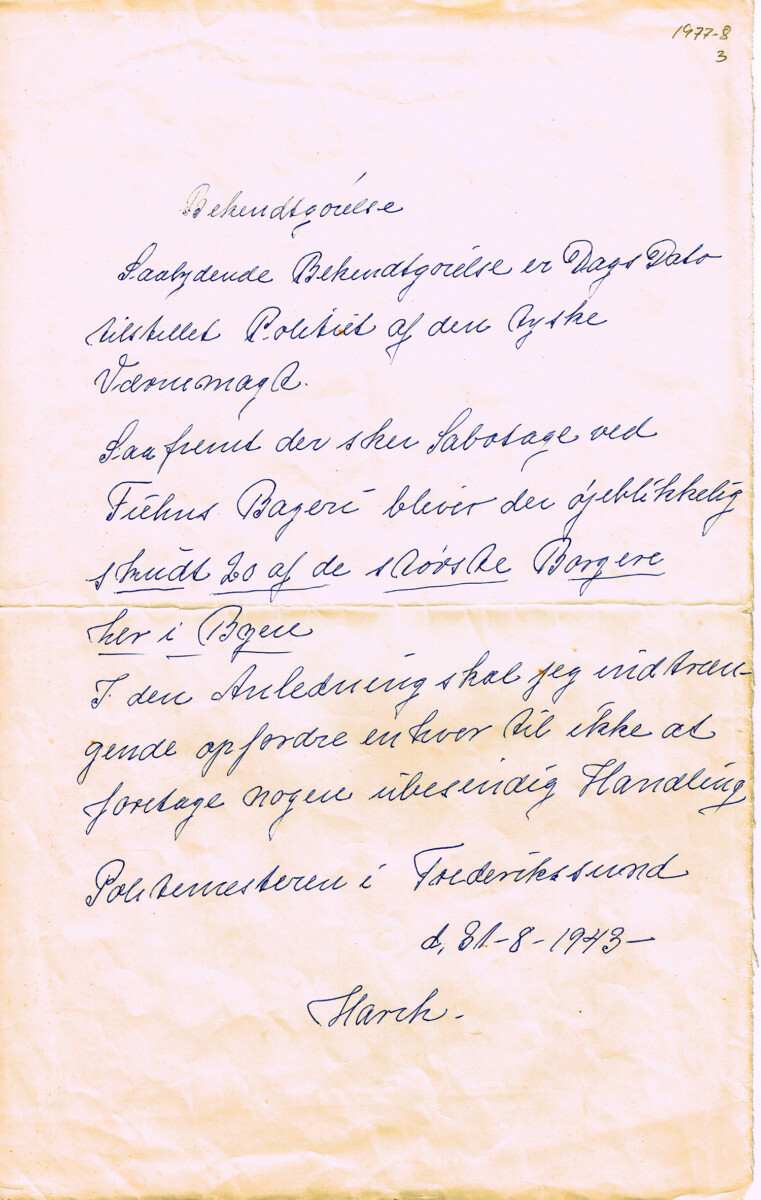 1977-8
3
Bekendtgørelse
Saalydende Bekendtgørelse er Dags Dato
tilstillet Politiet af den tyske
Værnemagt.
Saafremt der sker Sabotage ved
Fühns Bageri bliver der øjeblikkelig
skudt 20 af de største Borgere
her i Byen
I den Anledning skal jeg indtræn-
gende opfordre enhver til ikke at
foretage nogen ubesindig Handling
Politemesteren i Frederikssund
d, 31-8-1943-
Harck.